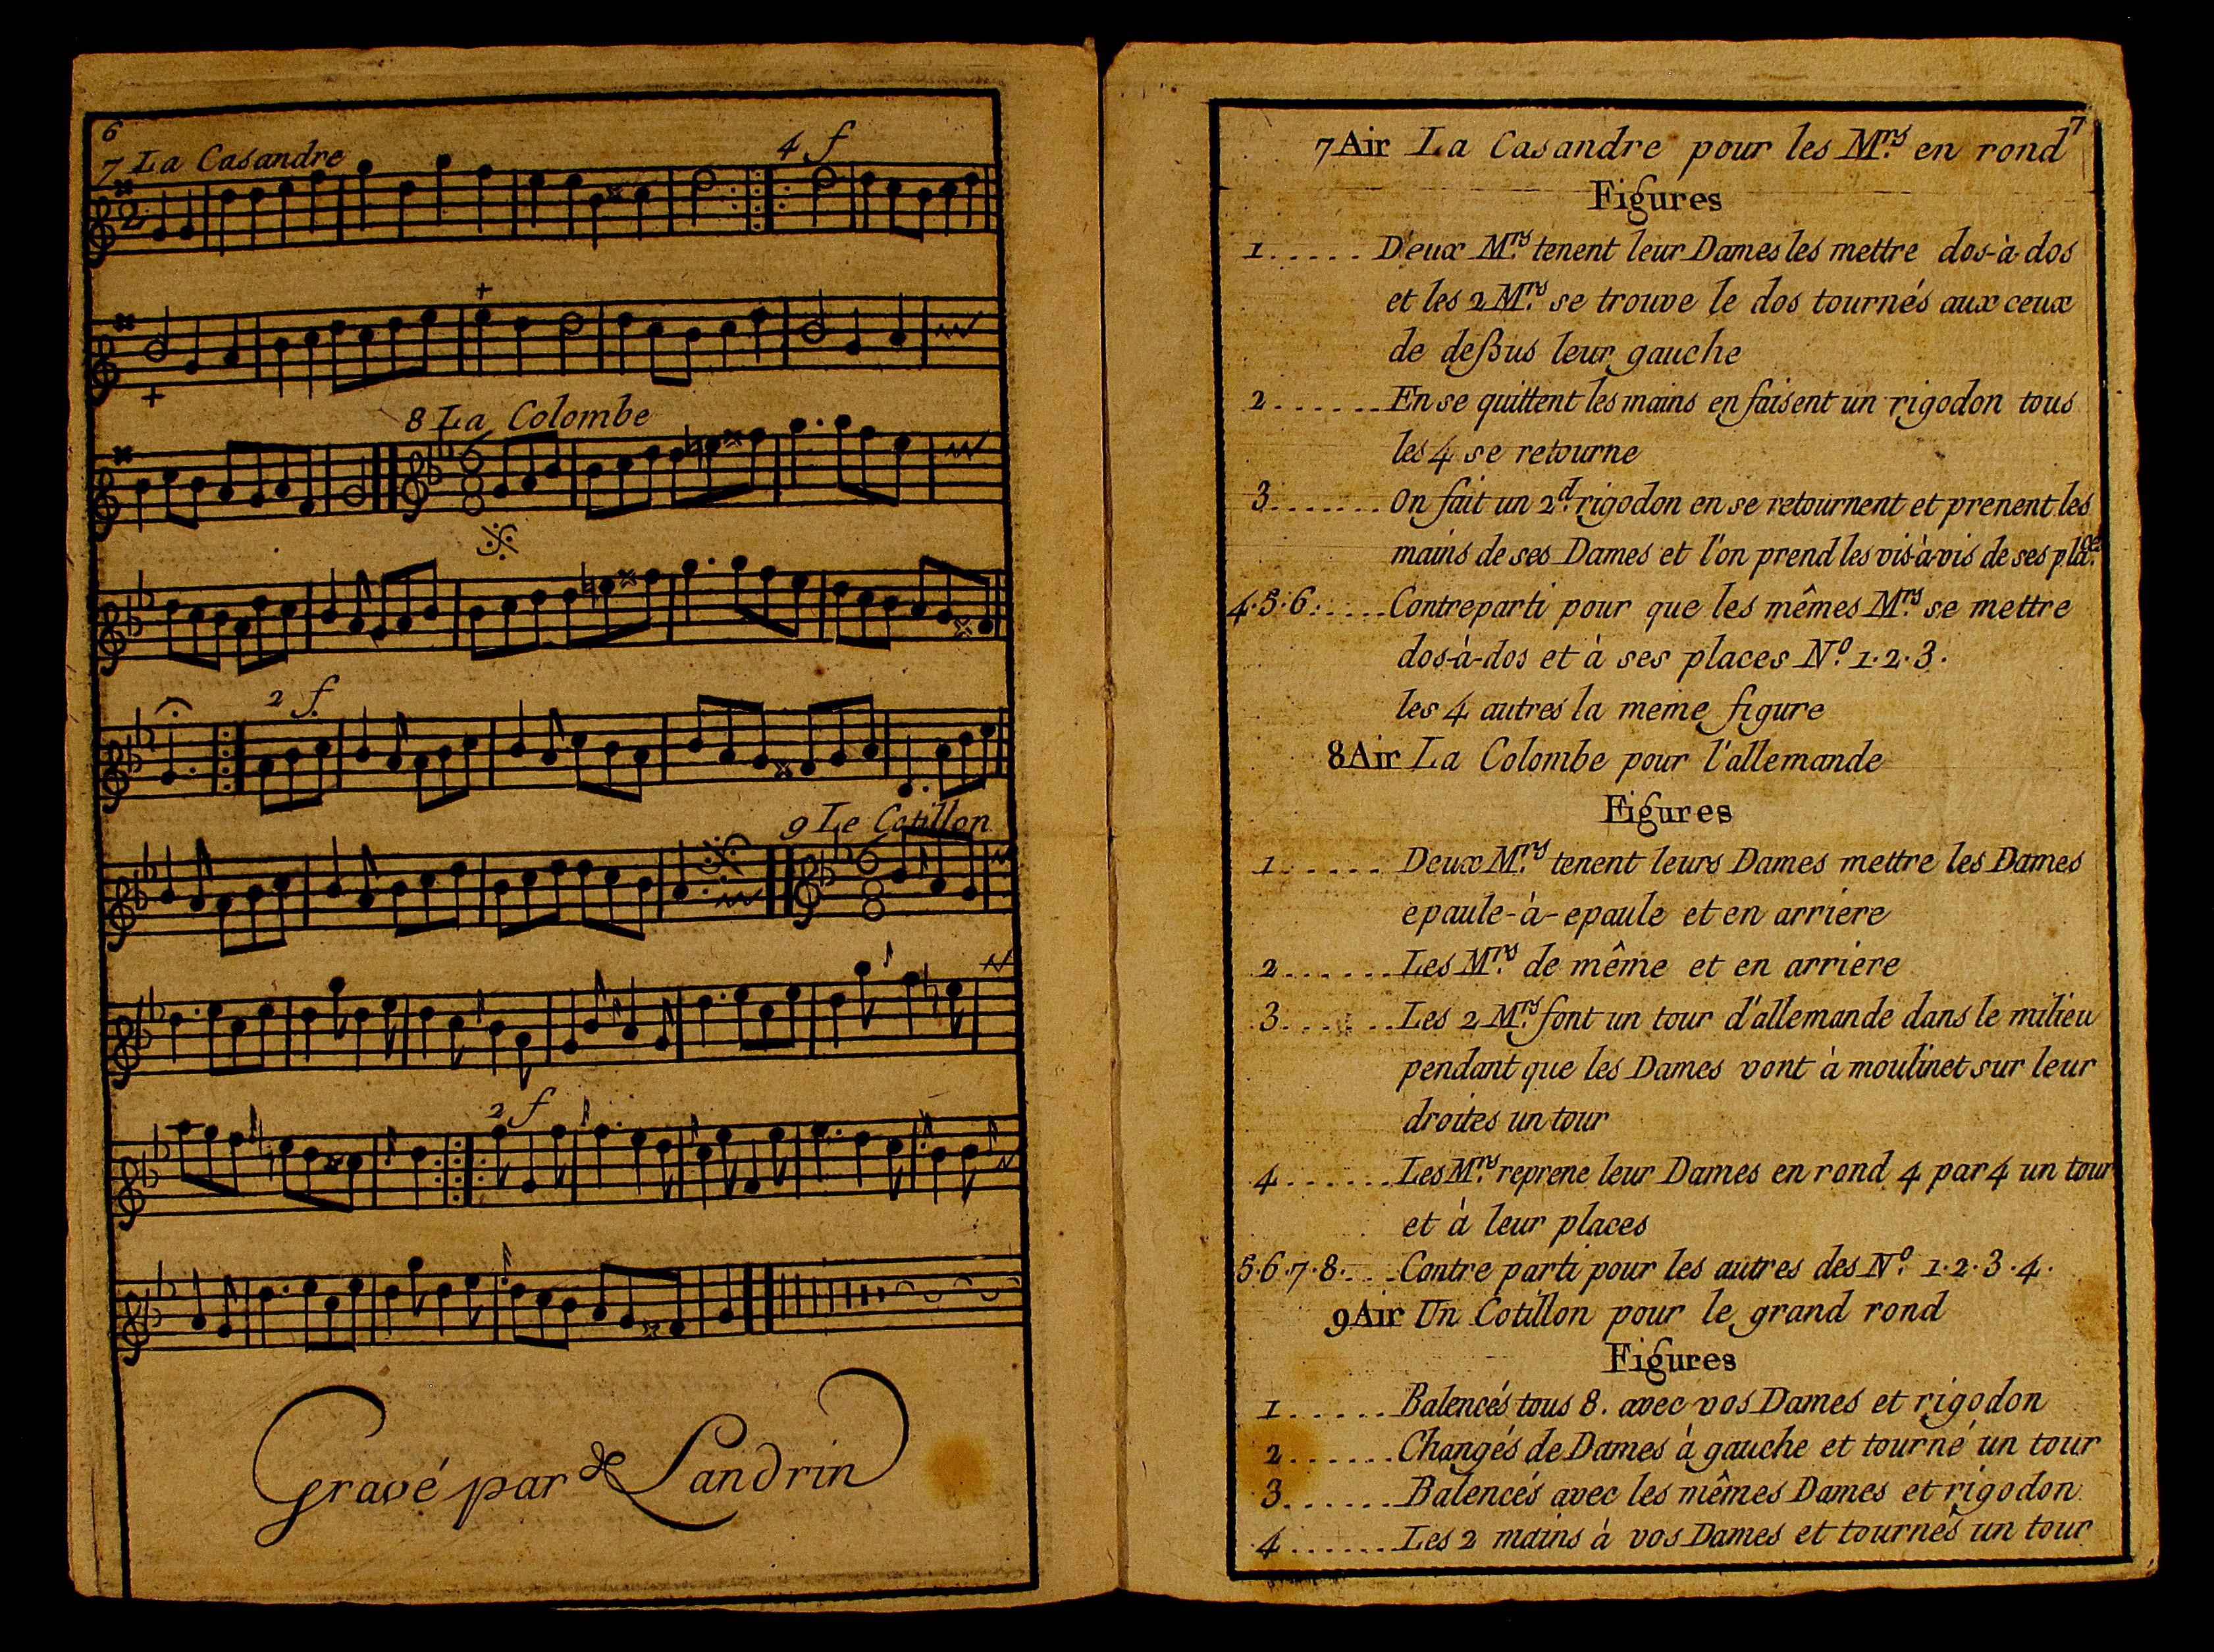 6
7 La Casandre
4 f
8 La Colombe
2 f
9 Le Cotillon
2 f
Gravé par de Landrin
7
7 Air La Casandre pour les Mrs. en rond
Figures
1...... Deux Mrs. tenent leur Dames les mettre dos-à-dos
et les 2 Mrs. se trouve le dos tournés aux ceux
de deßus leur gauche
2...... En se quittent les mains en faisent un rigodon tous
les 4 se retourne
3....... on fait un 2d. rigodon en se retournent et prenent les
mains de ses Dames et l'on prend les vis-à-vis de ses place.
4.5.6..... Contreparti pour que les mêmes Mrs. se mettre
dos-à-dos et à ses places No. 1.2.3.
les 4 autres la meme figure
8 Air La Colombe pour l'allemande
Figures
1...... Deux Mrs. tenent leurs Dames mettre les Dames
epaule-à-epaule et en arriere
2...... Les Mrs. de même et en arriere
3...... Les 2 Mrs. font un tour d'allemande dans le milieu
pendant que les Dames vont à moulinet sur leur
droites un tour
4....... Les Mrs. reprene leur Dames en rond 4 par 4 un tour
et à leur places
5.6.7.8.... Contre parti pour les autres des No. 1.2.3.4.
9 Air Un Cotillon pour le grand rond
Figures
1...... Balencés tous 8. avec vos Dames et rigodon
2...... Changés de Dames à gauche et tourné un tour
3...... Balencés avec les mêmes Dames et rigodon.
4....... Les 2 mains à vos Dames et tournés un tour